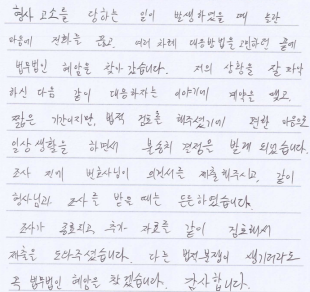 형사 고소를 당하는 일이 발생하였을 때 놀란
마음에 전화를 끊고, 여러 차례 대응방법을 고민하던 끝에
법무법인 혜암을 찾아 갔습니다. 저의 상황을 잘
하신 다음 같이 대응하자는 이야기에 계약을 맺고,
짧은 기간이지만, 법적 검토를 해주셨기에 편한 마음으로
일상생활을 하면서 불송치 결정을 받게 되었습니다.
조사 전에 변호사님이 의견서를 제출해주시고, 같이
형사님과 조사를 받을 때는 든든하였습니다.
조사가 종료되고, 추가 자료를 같이 검토해서
제출을 도와주셨습니다. 다른 법적분쟁이 생기더라도
꼭 법무법인 혜암을 찾겠습니다. 감사합니다.